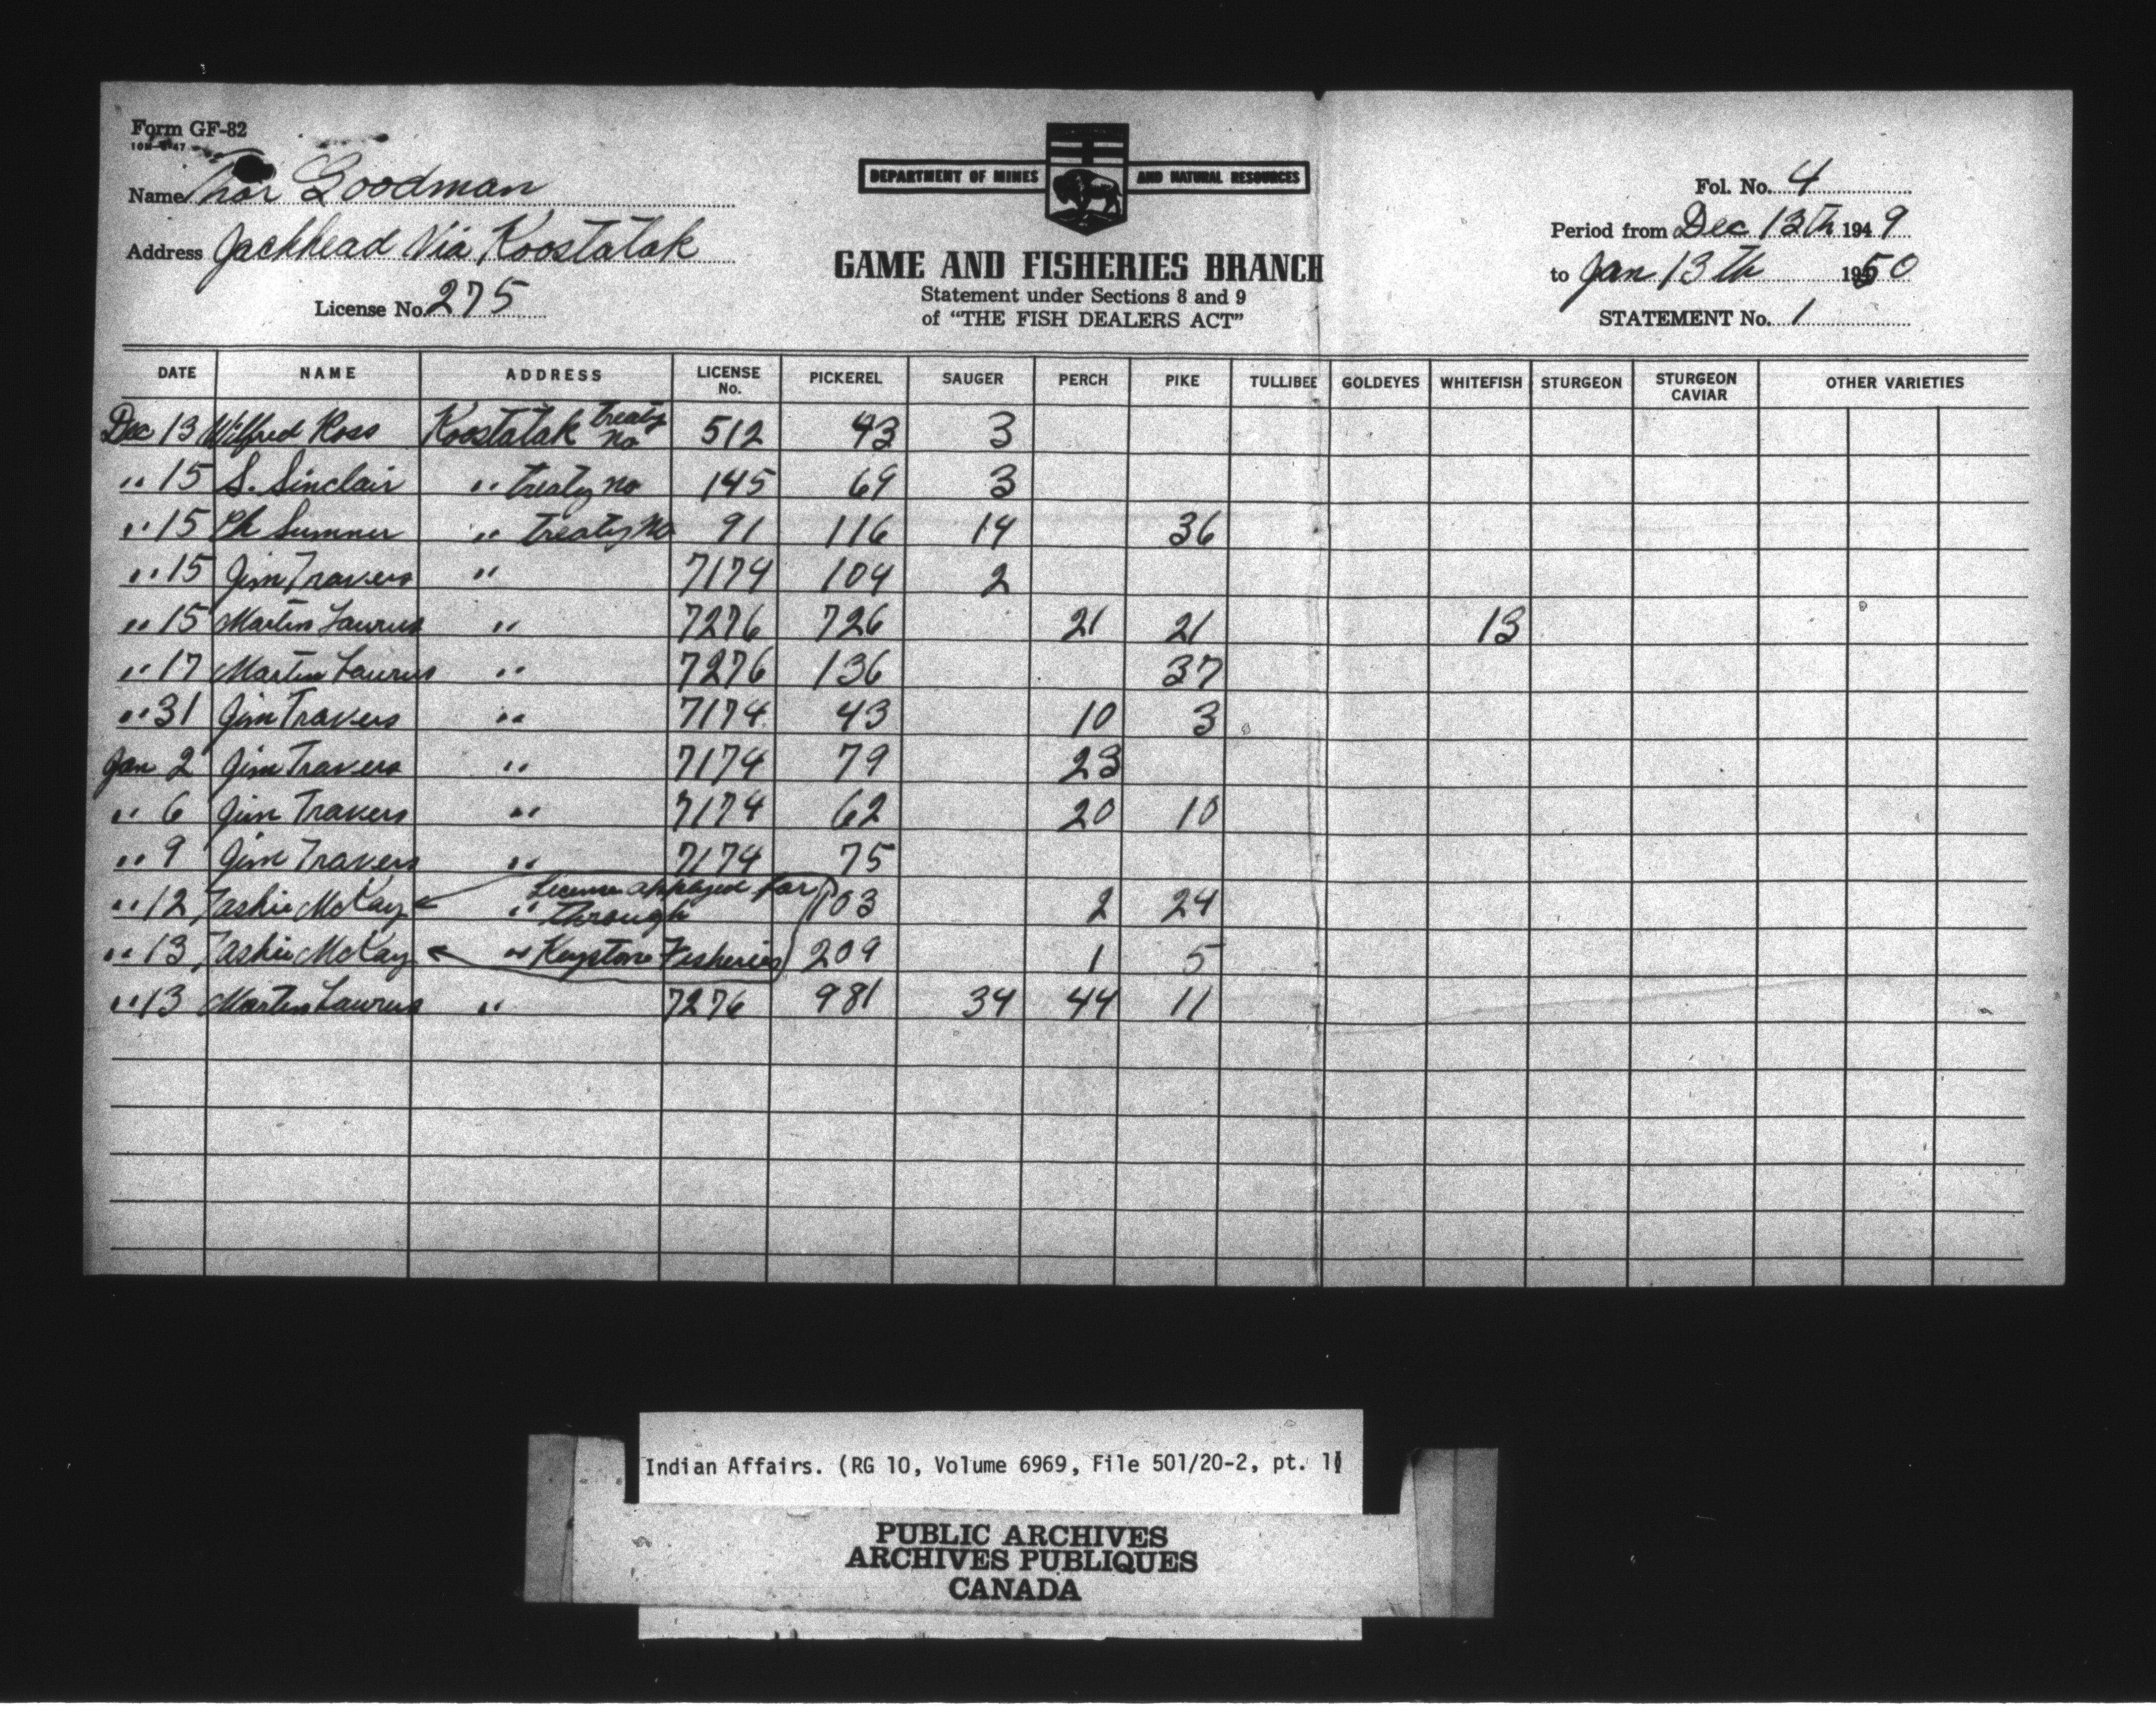 Form GF-82
10M-8-47
Name Thor Goodman
Address Jackhead Via Koostatak
License No. 275
DEPARTMENT OF MINES AND NATURAL RESOURCES
GAME AND FISHERIES BRANCH
Statement under Sections 8 and 9
of "THE FISH DEALERS ACT"
Fol. No. 4
Period from Dec 13th 1949
to Jan 13th 1950
STATEMENT No. 1
DATE NAME ADDRESS LICENSE No. PICKEREL SAUGER PERCH PIKE TULLIBEE GOLDEYES WHITEFISH STURGEON STURGEON CAVIAR OTHER VARIETIES
Dec 13 Wilfred Ross Koostatak treaty no 512 93 3
" 15 S. Sinclair " treaty no 145 69 3
" 15 Ch Sumner " treaty no 91 116 14 36
" 15 Jim Travers " 7174 104 2
" 15 Martin Laurus " 7276 726 21 21 13
" 17 Martin Laurus " 7276 136 37
" 31 Jim Travers " 7174 43 10 3
Jan 2 Jim Travers " 7174 79 23
" 6 Jim Travers " 7174 62 20 10
" 9 Jim Travers " 7174 75
" 12 McKay " License applyed for through 103 2 24
" 13 McKay " Keystone Fisheries 209 1 5
" 13 Martin Laurus " 7276 981 34 44 11
Indian Affairs. (RG 10, Volume 6969, File 501/20-2, pt. 1
PUBLIC ARCHIVES
ARCHIVES PUBLIQUES
CANADA